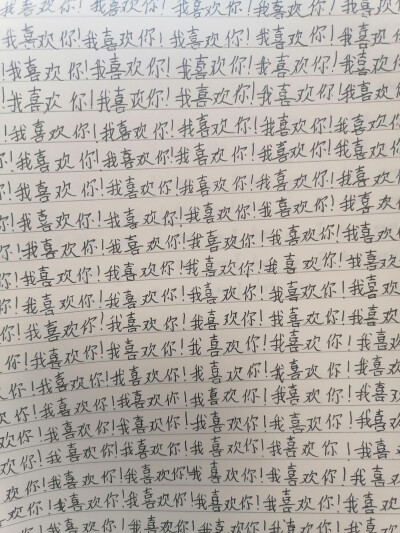 我喜欢你!我喜欢你!我喜欢你!我喜欢你!我喜欢
我喜欢你!我喜欢你!我喜欢你!我喜欢你!我喜欢
!我喜欢你!我喜欢你!我喜欢你!我喜欢你!我喜欢
!我喜欢你!我喜欢你!我喜欢你!我喜欢你!我喜欢
!我喜欢你!我喜欢你!我喜欢你!我喜欢你!我喜欢
你!我喜欢你!我喜欢你!我喜欢你!我喜欢你!我喜欢
你!我喜欢你!我喜欢你!我喜欢你!我喜欢你!我喜欢
你!我喜欢你!我喜欢你!我喜欢你!我喜欢你!我喜欢
你!我喜欢你!我喜欢你!我喜欢你!我喜欢你!我喜欢
你!我喜欢你!我喜欢你!我喜欢你!我喜欢你!我喜欢
你!我喜欢你!我喜欢你!我喜欢你!我喜欢你!我喜欢
你!我喜欢你!我喜欢你!我喜欢你!我喜欢你!我喜欢
你!我喜欢你!我喜欢你!我喜欢你!我喜欢你!我喜
欢你!我喜欢你!我喜欢你!我喜欢你!我喜欢你!我喜
欢你!我喜欢你!我喜欢你!我喜欢你!我喜欢你!我喜
欢你!我喜欢你!我喜欢你!我喜欢你!我喜欢你!我喜
欢你!我喜欢你!我喜欢你!我喜欢你!我喜欢你!我喜
欢你!我喜欢你!我喜欢你!我喜欢你!我喜欢你!我喜
欢你!我喜欢你!我喜欢你!我喜欢你!我喜欢你!我喜
欢你!我喜欢你!我喜欢你!我喜欢你!我喜欢你!我喜